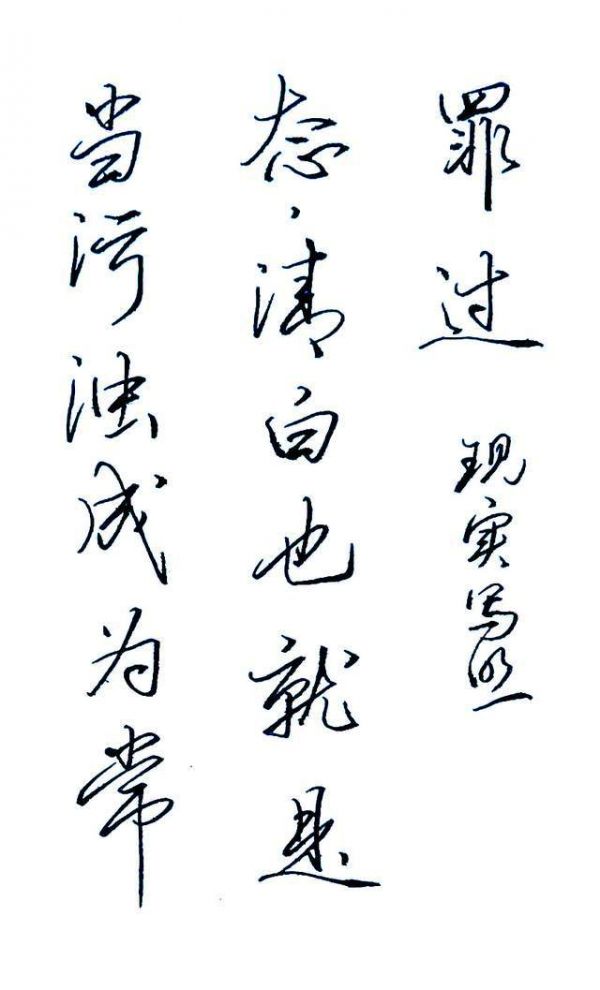 当污浊成为常
态,清白也就是
罪过
现实写照